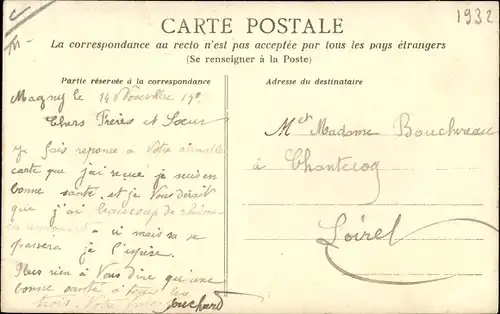 1932
CARTE POSTALE
La correspondance au recto n'est pas acceptée par tous les pays étrangers
(Se renseigner à la Poste)
Partie réservée à la correspondance
Adresse du destinataire
Magny le 14 Novembre 190
Chers Frères et Soeur
Je fais reponse a Votre aimable
carte que j'ai reçue je suis en
bonne santé et je Vous dirait
que j'ai beaucoup de
mais sa se
passera je l'espère.
Plus rien à Vous dire qu'une
bonne santé à tous les
trois. Votre frère
Bouchard
M et Madame Bouchereau
à Chantecoq
Loiret